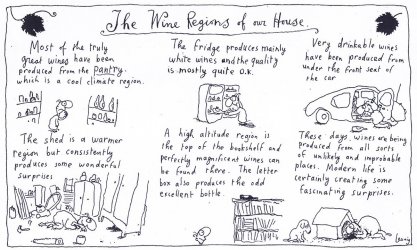 The Wine Regions of our House.
Most of the truly
great wines have been
produced from the pantry
which is a cool climate region.
The fridge produces mainly
white wines and the quality
is mostly quite O.K.
Very drinkable wines
have been produced from
under the front seat of
the car
The shed is a warmer
region but consistently
produces some wonderful
surprises
A high altitude region is
the top of the bookshelf and
perfectly magnificent wines can
be found there. The letter
box also produces the odd
excellent bottle.
These days wines are being
produced from all sorts
of unlikely and improbable
places. Modern life is
certainly creating some
fascinating surprises.
Leunig